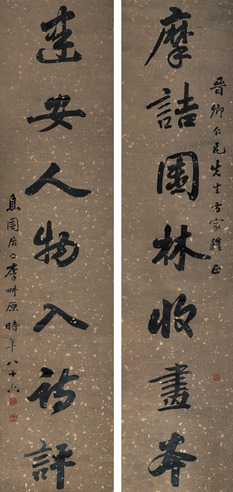 晉卿仁兄先生方家正
摩詰園林收畫
建安人物入詩評
息園居士李畊原時年八十六